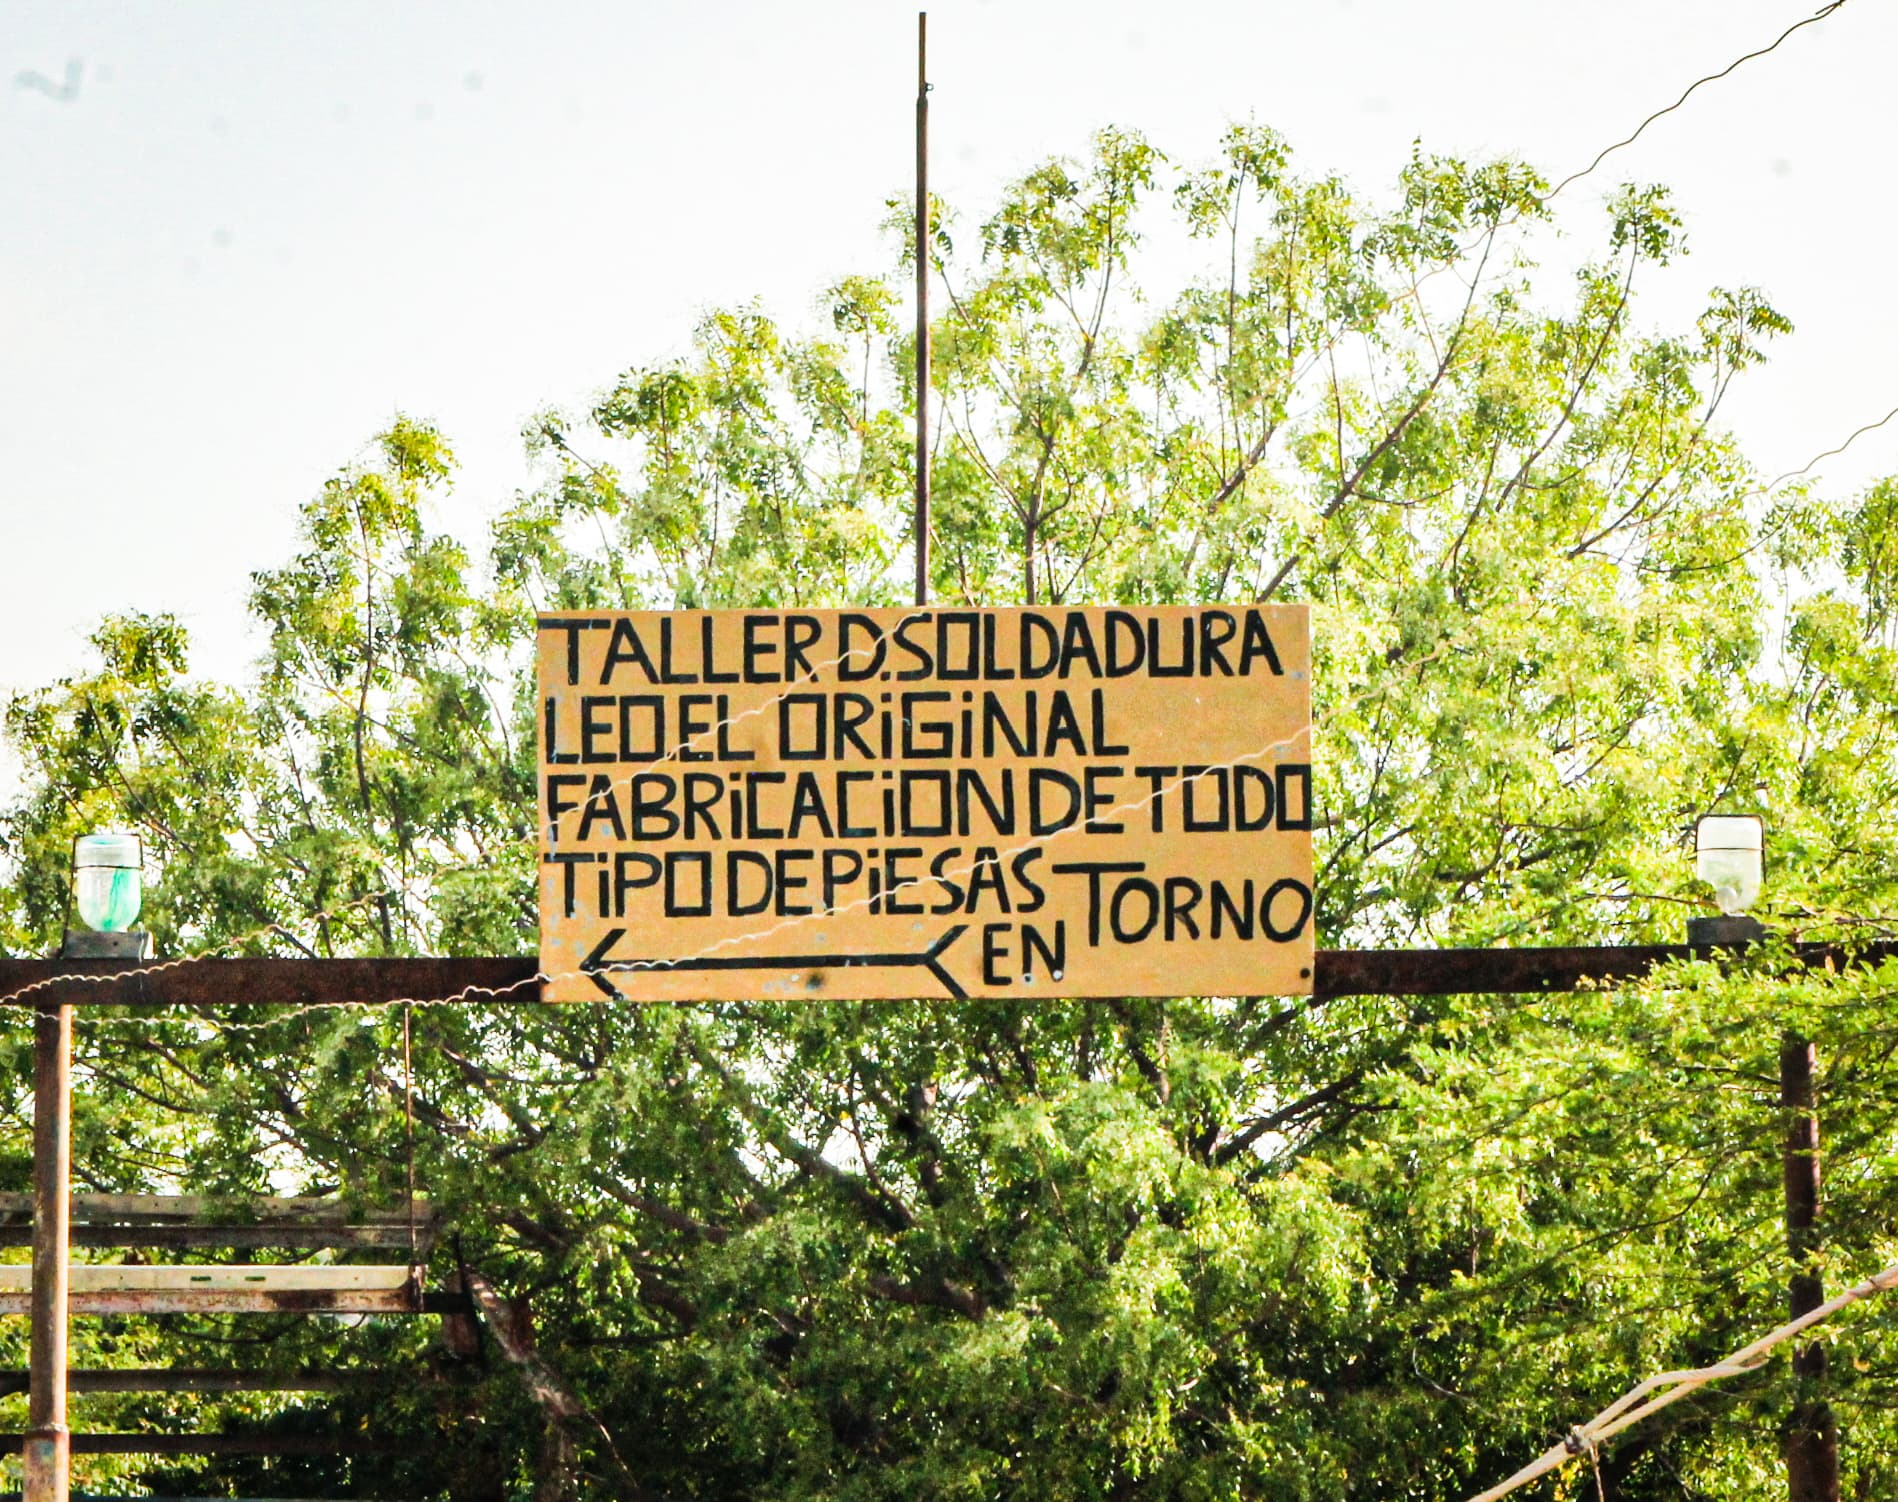 TALLER D.SOLDADURA
LEO EL ORiGiNAL
FABRiCACiON DE TODO
TiPO DE PiESAS
EN TORNO